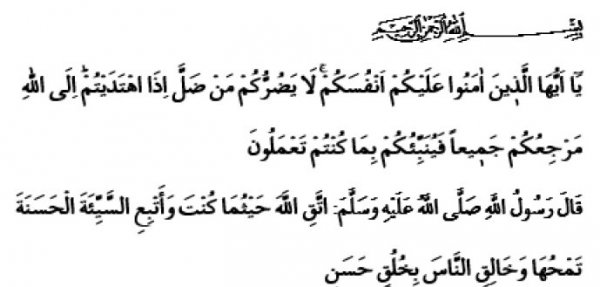 بِسْــــــــــــــــمِ اللهِ الرَّحْمٰنِ الرَّحِيمِ
يَٓا اَيُّهَا الَّذ۪ينَ اٰمَنُوا عَلَيْكُمْ اَنْفُسَكُمْۚ لَا يَضُرُّكُمْ مَنْ ضَلَّ اِذَا اهْتَدَيْتُمْۜ اِلَى اللهِ
مَرْجِعُكُمْ جَم۪يعاً فَيُنَبِّئُكُمْ بِمَا كُنْتُمْ تَعْمَلُونَ
قَالَ رَسُولُ اللهِ صَلَّى اللهُ عَلَيْهِ وَسَلَّمَ: اتَّقِ اللهَ حَيْثُمَا كُنْتَ وَأَتْبِعِ السَّيِّئَةَ الْحَسَنَةَ
تَمْحُهَا وَخَالِقِ النَّاسَ بِخُلُقٍ حَسَنٍ